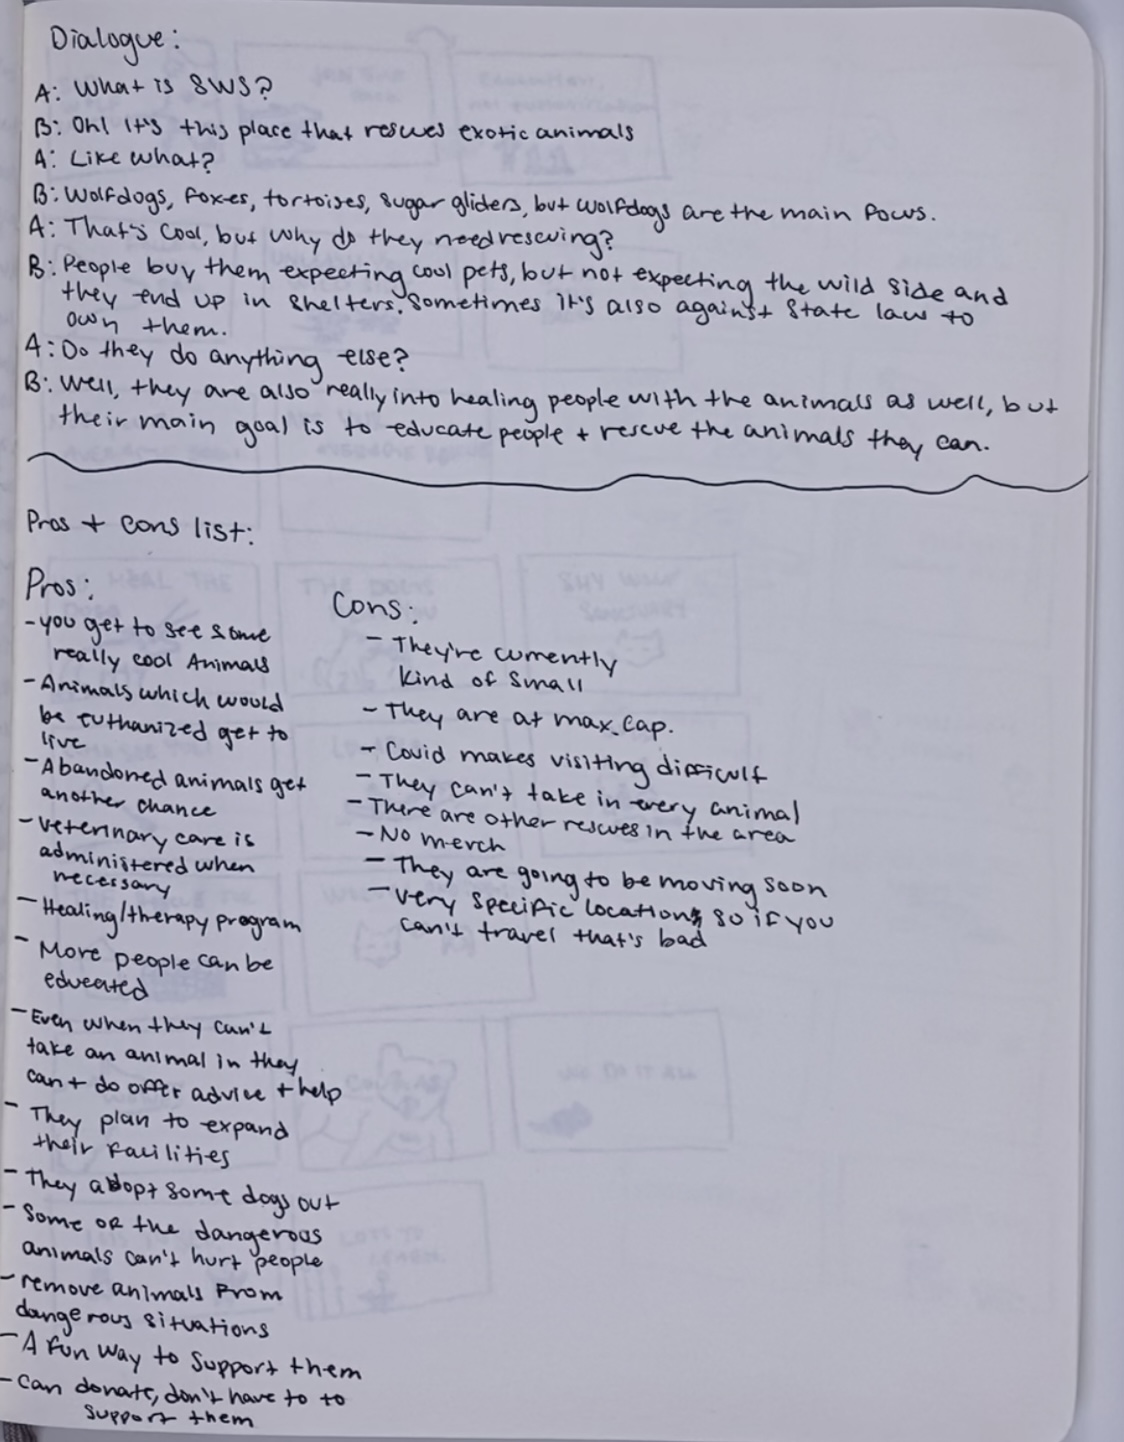 Dialogue:
A: What is SWS?
B: Oh! It's this place that rescues exotic animals
A: Like what?
B: Wolfdogs, foxes, tortoises, sugar gliders, but wolfdogs are the main focus.
A: That's cool, but why do they need rescuing?
B: People buy them expecting cool pets, but not expecting the wild side and
they end up in shelters. Sometimes it's also against state law to
own them.
A: Do they do anything else?
B: Well, they are also really into healing people with the animals as well, but
their main goal is to educate people + rescue the animals they can.
Pros + cons list:
Pros:
- you get to see some
really cool Animals
- Animals which would
be euthanized get to
live
- Abandonned animals get
another chance
- veterinary care is
administered when
necessary
- Healing/therapy program
- More people can be
educated
- Even when they can't
take an animal in they
can + do offer advice + help
- They plan to expand
their facilities
- They adopt some dogs out
- Some of the dangerous
animals can't hurt people
- remove animals from
dangerous situations
- A fun way to support them
- can donate, don't have to to
support them
Cons:
- They're currently
kind of small
- They are at max. cap.
- Covid makes visiting difficult
- They can't take in every animal
- There are other rescues in the area
- No merch
- They are going to be moving soon
- very specific locations so if you
can't travel that's bad
WE DO IT ALL